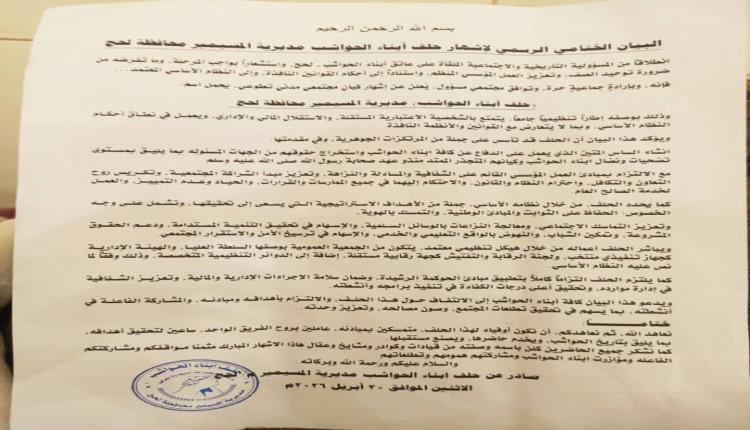 بسم الله الرحمن الرحيم
البيان الختامي الرسمي لإشهار حلف أبناء الحواشب مديرية المسيمير محافظة لحج
انطلاقاً من المسؤولية التاريخية والاجتماعية الملقاة على عاتق أبناء الحواشب ـ لحج، واستشعاراً بواجب المرحلة، وما تفرضه من
ضرورة توحيد الصف، وتعزيز العمل المؤسسي المنظم، واستناداً إلى أحكام القوانين النافذة، وإلى النظام الأساسي المعتمد...
فإنه، وبإرادةٍ جماعيةٍ حرة، وتوافق مجتمعي مسؤول، يُعلن عن إشهار كيان مجتمعي مدني تطوعي، يحمل اسم:
(حلف أبناء الحواشب) مديرية المسيمير محافظة لحج
وذلك بوصفه إطاراً تنظيمياً جامعاً، يتمتع بالشخصية الاعتبارية المستقلة، والاستقلال المالي والإداري، ويعمل في نطاق أحكام
النظام الأساسي، وبما لا يتعارض مع القوانين والأنظمة النافذة
ويؤكد هذا البيان أن الحلف قد تأسس على جملة من المرتكزات الجوهرية، وفي مقدمتها:
انشاء الساس المتين الذي يعمل على الدفاع عن كافة ابناء الحواشب واستخراج حقوقهم من الجهات المسئوله بما يليق بمستوى
تضحيات ونضال ابناء الحواشب وكيانهم المتجذر الممتد منذو عهد صحابة رسول الله صلى الله عليه وسلم
مع الالتزام بمبادئ العمل المؤسسي القائم على الشفافية والمساءلة والنزاهة، وتعزيز مبدأ الشراكة المجتمعية، وتكريس روح
التعاون والتكافل، واحترام النظام والقانون، والاحتكام إليهما في جميع الممارسات والقرارات، والحياد وعدم التمييز، والعمل
لخدمة الصالح العام
كما يحدد الحلف، من خلال نظامه الأساسي، جملة من الأهداف الاستراتيجية التي يسعى إلى تحقيقها، وتشمل على وجه
الخصوص: الحفاظ على الثوابت والمبادئ الوطنية، والتمسك بالهوية،
وتعزيز التماسك الاجتماعي، ومعالجة النزاعات بالوسائل السلمية، والإسهام في تحقيق التنمية المستدامة، ودعم الحقوق
المشروعة، وتمكين الشباب، والنهوض بالواقع التعليمي والخدمي، والإسهام في ترسيخ الأمن والاستقرار المجتمعي.
ويباشر الحلف أعماله من خلال هيكل تنظيمي معتمد، يتكون من الجمعية العمومية بوصفها السلطة العليا، والهيئة الإدارية
كجهاز تنفيذي منتخب، ولجنة الرقابة والتفتيش كجهة رقابية مستقلة، إضافة إلى الدوائر التنظيمية المتخصصة، وذلك وفقاً لما
نص عليه النظام الأساسي.
كما يلتزم الحلف التزاماً كاملاً بتطبيق مبادئ الحوكمة الرشيدة، وضمان سلامة الإجراءات الإدارية والمالية، وتعزيز الشفافية
في إدارة موارده، وتحقيق أعلى درجات الكفاءة في تنفيذ برامجه وأنشطته.
ويدعو هذا البيان كافة أبناء الحواشب إلى الالتفاف حول هذا الحلف، والالتزام بأهدافه ومبادئه، والمشاركة الفاعلة في
أنشطته، بما يسهم في تحقيق تطلعات المجتمع، وصون مصالحه، وتعزيز وحدته.
ختاماً:
نعاهد الله، ثم نعاهدكم، أن نكون أوفياء لهذا الحلف، متمسكين بمبادئه، عاملين بروح الفريق الواحد، ساعين لتحقيق أهدافه،
بما يليق بتاريخ الحواشب، ويخدم حاضرها، ويصنع مستقبلها.
كما نشكر جميع الحاضرين كلن باسمه وصفته من قيادات وكوادر ومشايخ وعقال هذا الاشهار المبارك مثمنا مواقفكم ومشاركتكم
الفاعله ومؤازرت ابناء الحواشب ومشاركتهم همومهم وتطلعاتهم
والسلام عليكم ورحمة الله وبركاته
صادر عن حلف أبناء الحواشب مديرية المسيمير م لحج
الاثنين الموافق ٢٠ أبريل ٢٠٢٦م
حلف أبناء الحواشب
مديرية المسيمير محافظة لحج